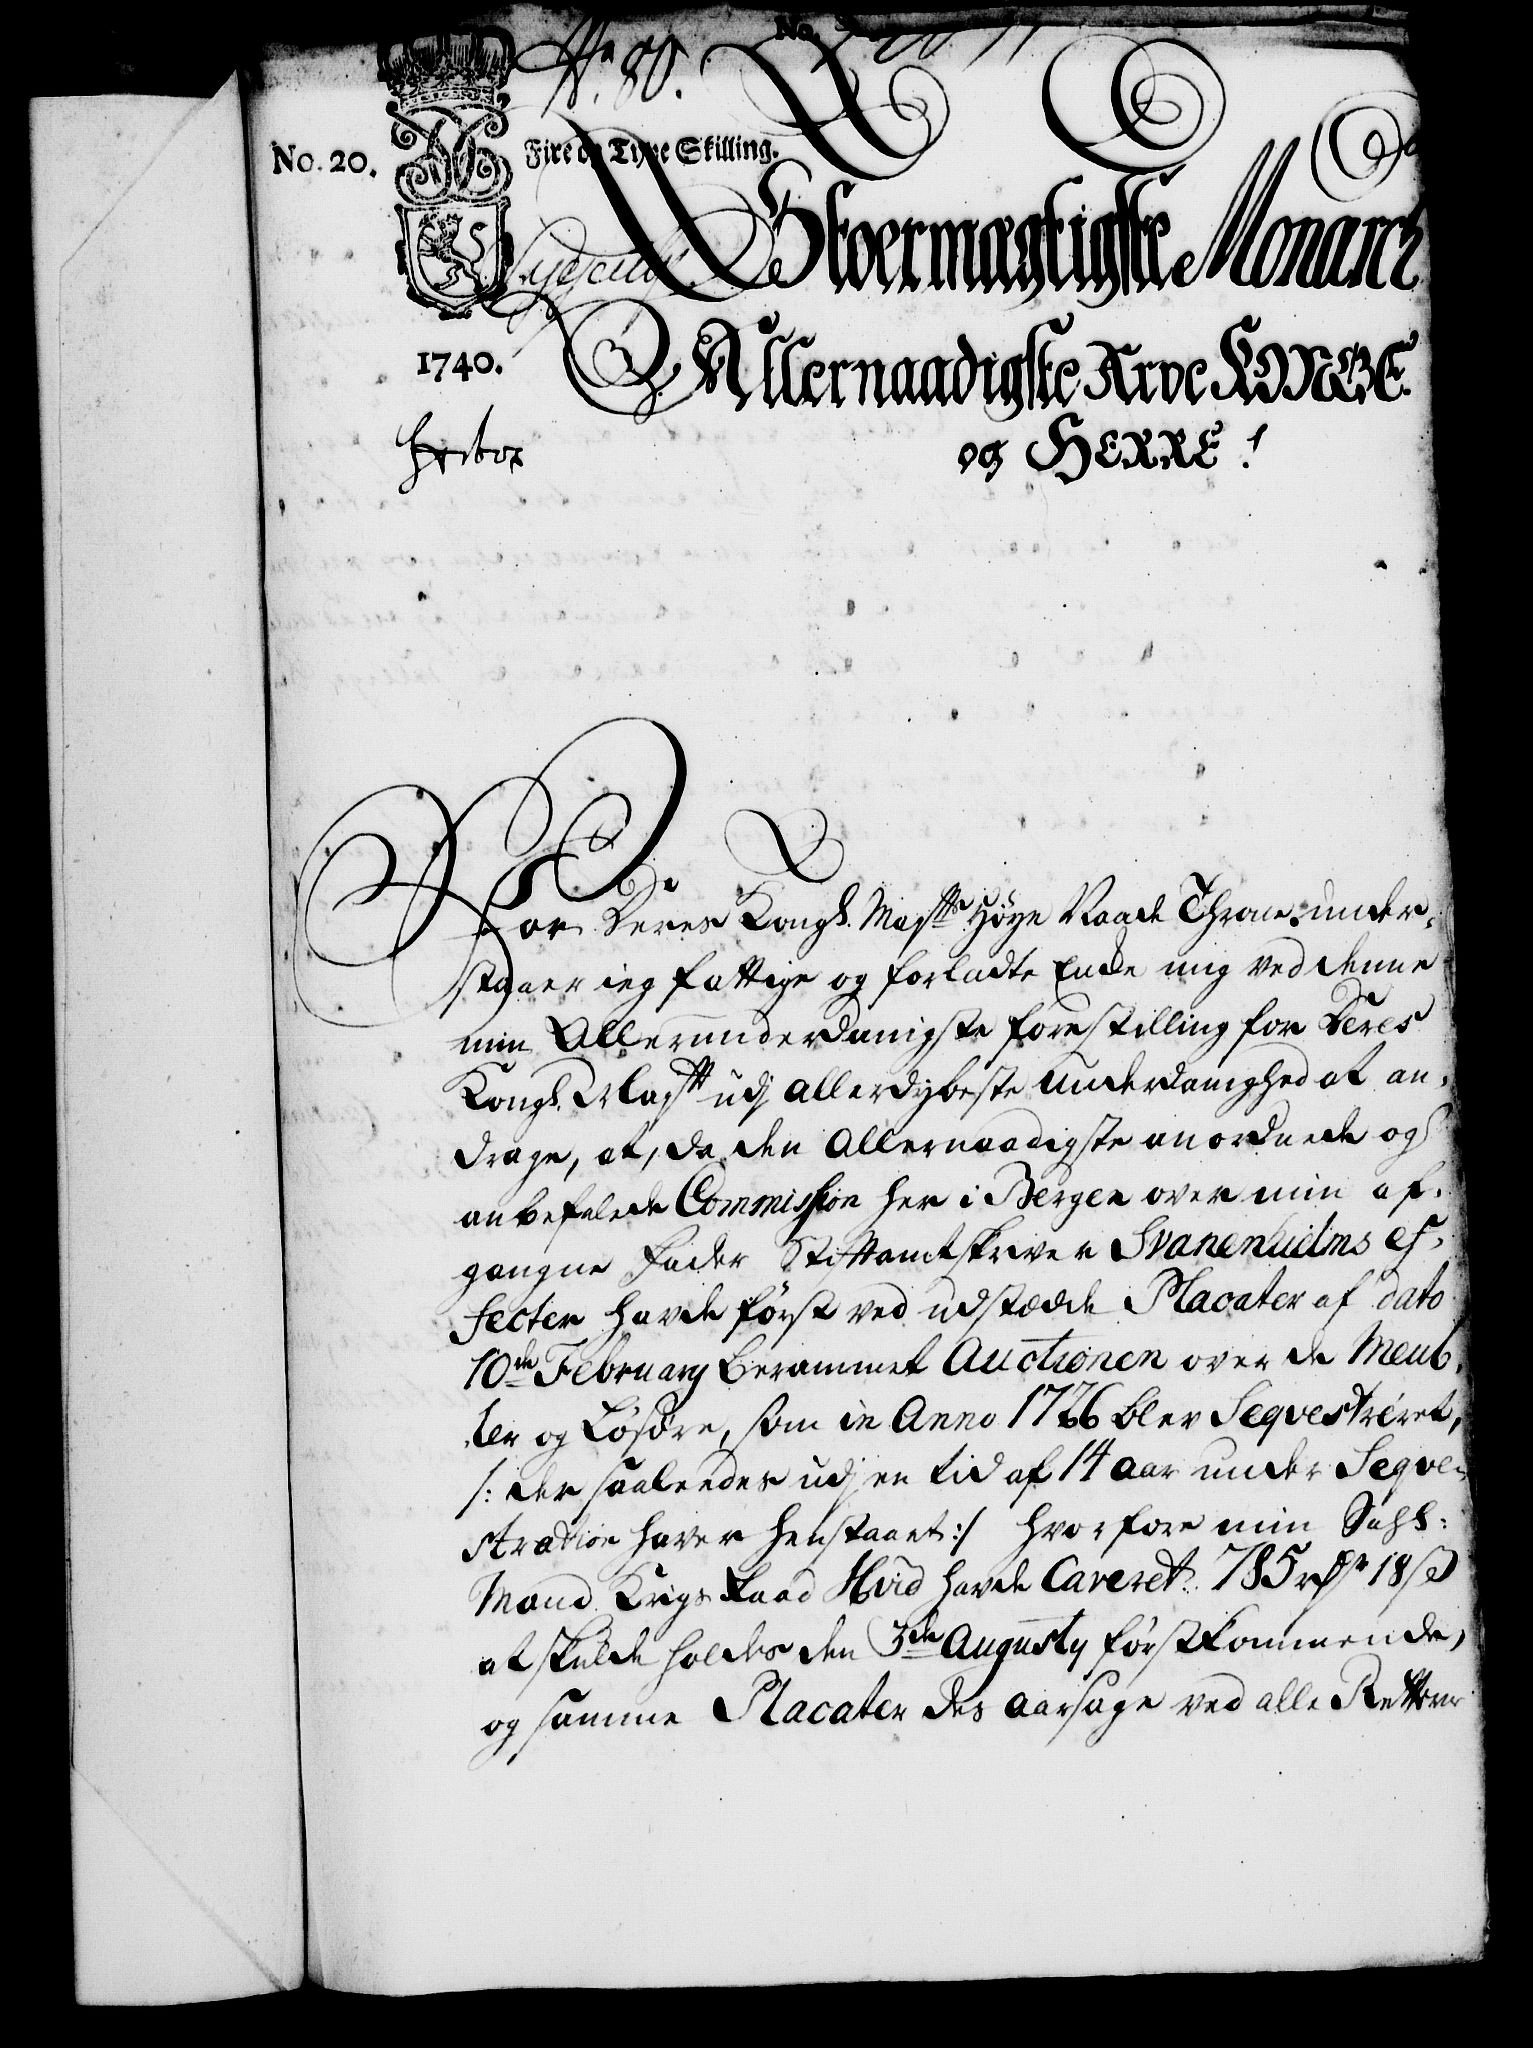 No. 80.
No. 20.
Fire og Tyve Skilling.
Stoermægtigste Monarch
Allernaadigste Arve KONGE
1740.
og HERRE!
For Deres Kongl. Maysts Høye Naade Throne under-
staaer ieg fattige og forladte Encke mig ved denne
min Allerunderdanigste forestilling for Deres
Kongl. Mayst udj allerdybeste underdanighed at an-
drage, at, da den Allernaadigste anordnede og
anbefalede Commission her i Bergen over min af-
gangne Fader Stiftamtskriver Svanenhielms ef-
fecter havde først ved udstædde Placater af dato
10de February berammet Auctionen over de Meub-
ler og Løsøre, som in Anno 1726 blev Seqvestreret,
/: der saaledes udj en tid af 14 aar under Seqve-
stration haver henstaaet :/ hvorfore min Sahl:
Mand Krigs Raad Hvid havde Caveret 785 rdr 18 s
at skulde holdes den 3de Augusty førstkommende,
og samme Placater des aarsage ved alle Retter